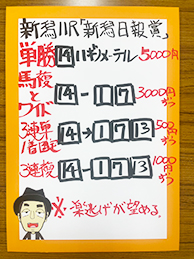 新潟11R「新潟日報賞」
単勝 14 ハギノメーテル 5000円
馬複とワイド 14-1 7 3000円ずつ
3連単 1着固定 14→1 7 13 500円ずつ
3連複 14-1 7 13 1000円ずつ
※楽逃げが望める。